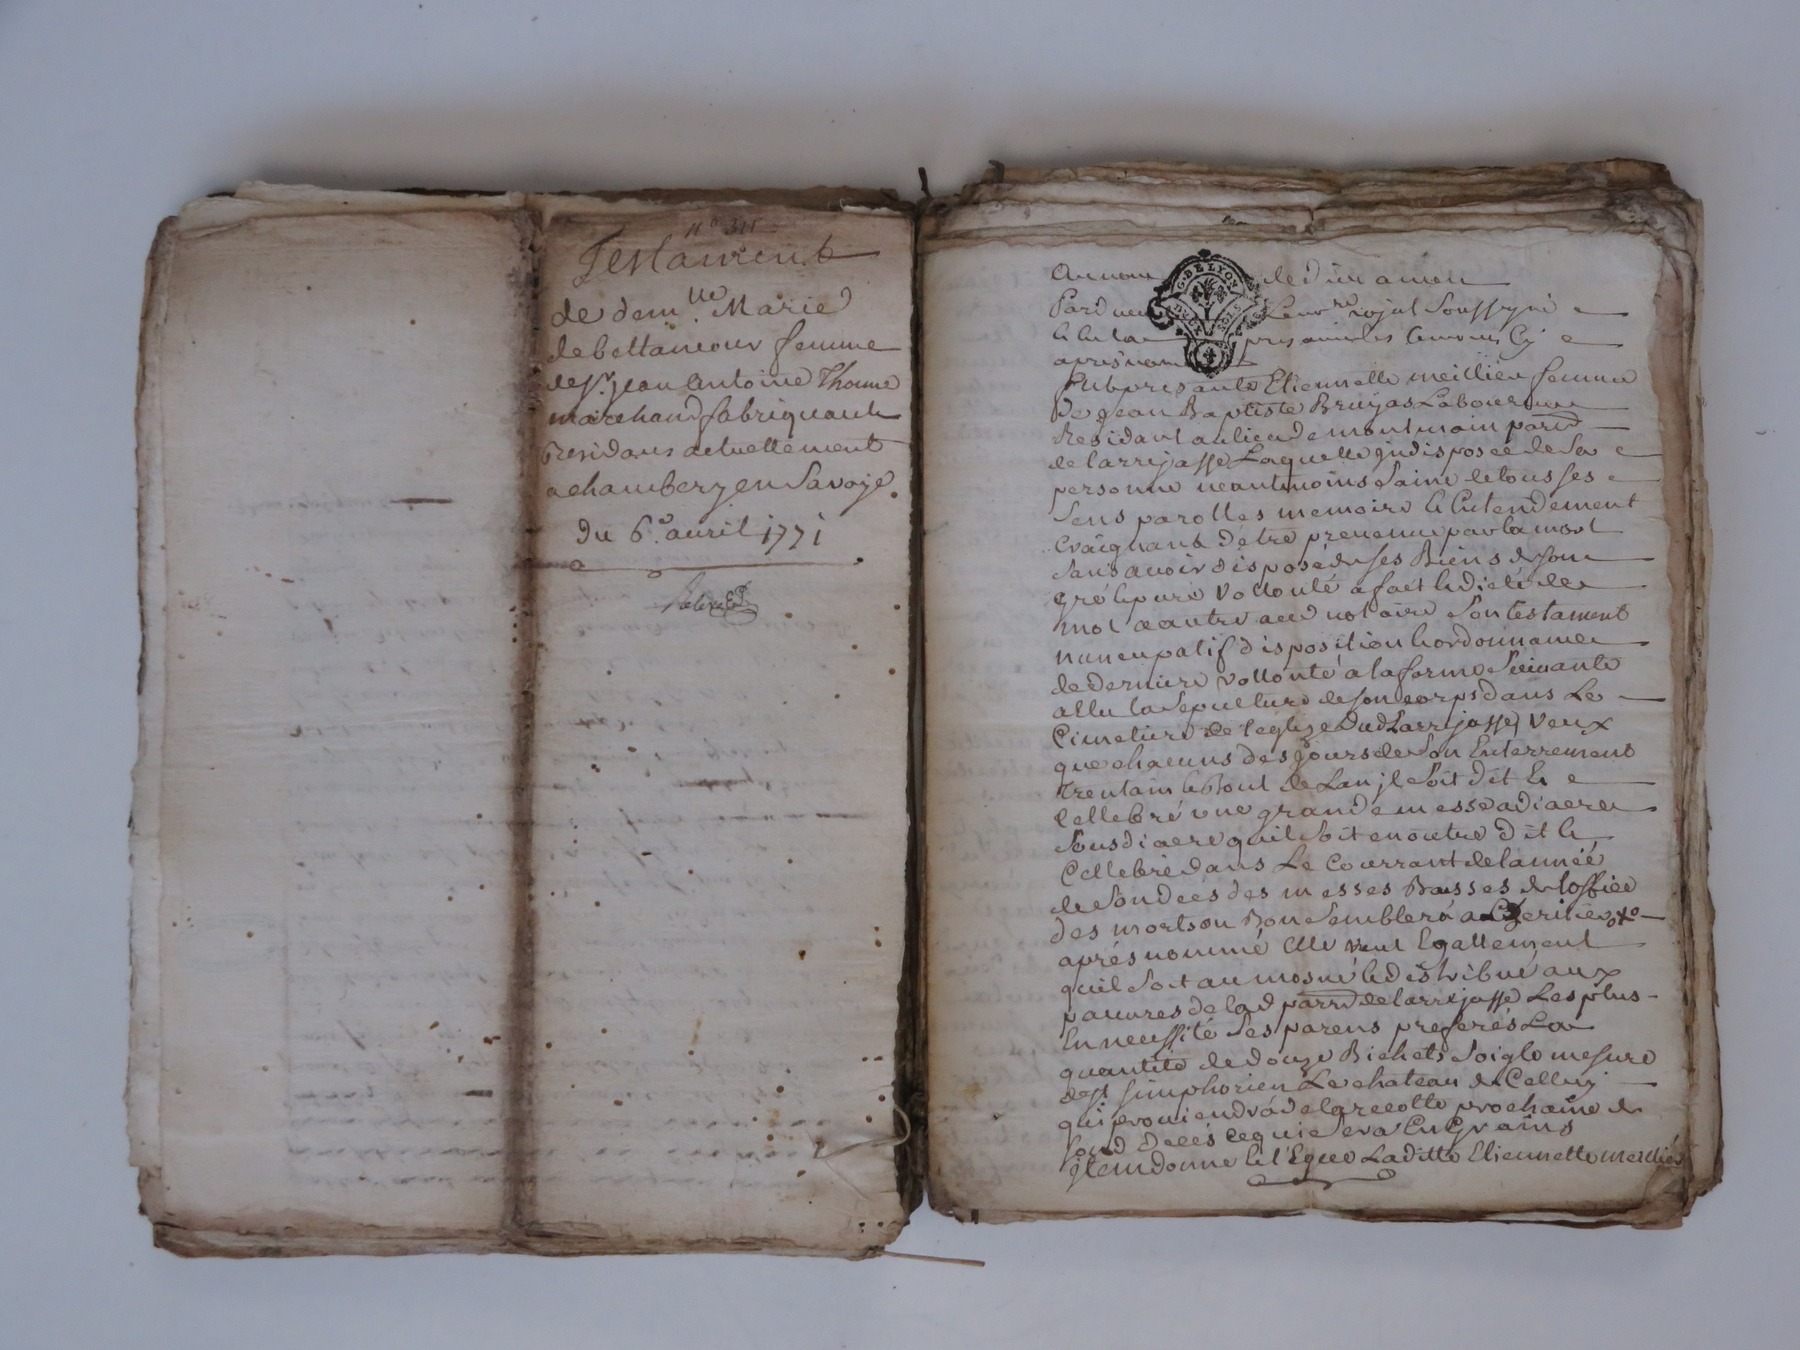 n° 311
Testament
de dem.lle Marie
de bellamour femme
de sr. jean antoine Thome
marchand fabriquant
residans actuellement
a chambery en Savoye.
du 6.e avril 1771
G. DE LYON
Au nom de dieu amen
Pard royal soussigné
presan
apres nom
fut presante Etiennette meillier femme
de jean Baptiste Bruyas Laboureur
Residant au lieu de montmain parr
de larrejasse Laquelle jndisposée de sa
personne neantmoins saine de tous ses
sens parolles memoire et Entendement
Craignant detre prevenue par la mort
sans avoir disposé de ses Biens de son
gré et pure vollonté a fait et dicté de
mot a autre aud notaire son testament
nuncupatif disposition et ordonnance
de derniere vollonté a la forme suivante
a Ellu la sepulture de son corps dans Le
Cimetiere de leglize dud Larrejasse Veux
que chacuns des jours de son Enterrement
trentain et Bout de Lan jl soit dit Et
Cellebré une grande messe a diacre
sousdiacre quil soit en outre dit et
Cellebré dans Le Courrant de lannéé
de son deces des messes Basses de loffice
des morts ou Bon semblera a heritier
aprés nommé Elle veut Egallement
quil soit aumosné et distribué aux
pauvres de lad parr de larrejasse Les plus
En necessité ses parens preferés La
quantité de douze Bichets soigle mesure
de st simphorien Le chateau de Celluy
qui proviendrá de la recolte prochaine de
sond decés ce qui sera En Grains
jtem donne et legue Laditte Etiennette meillier